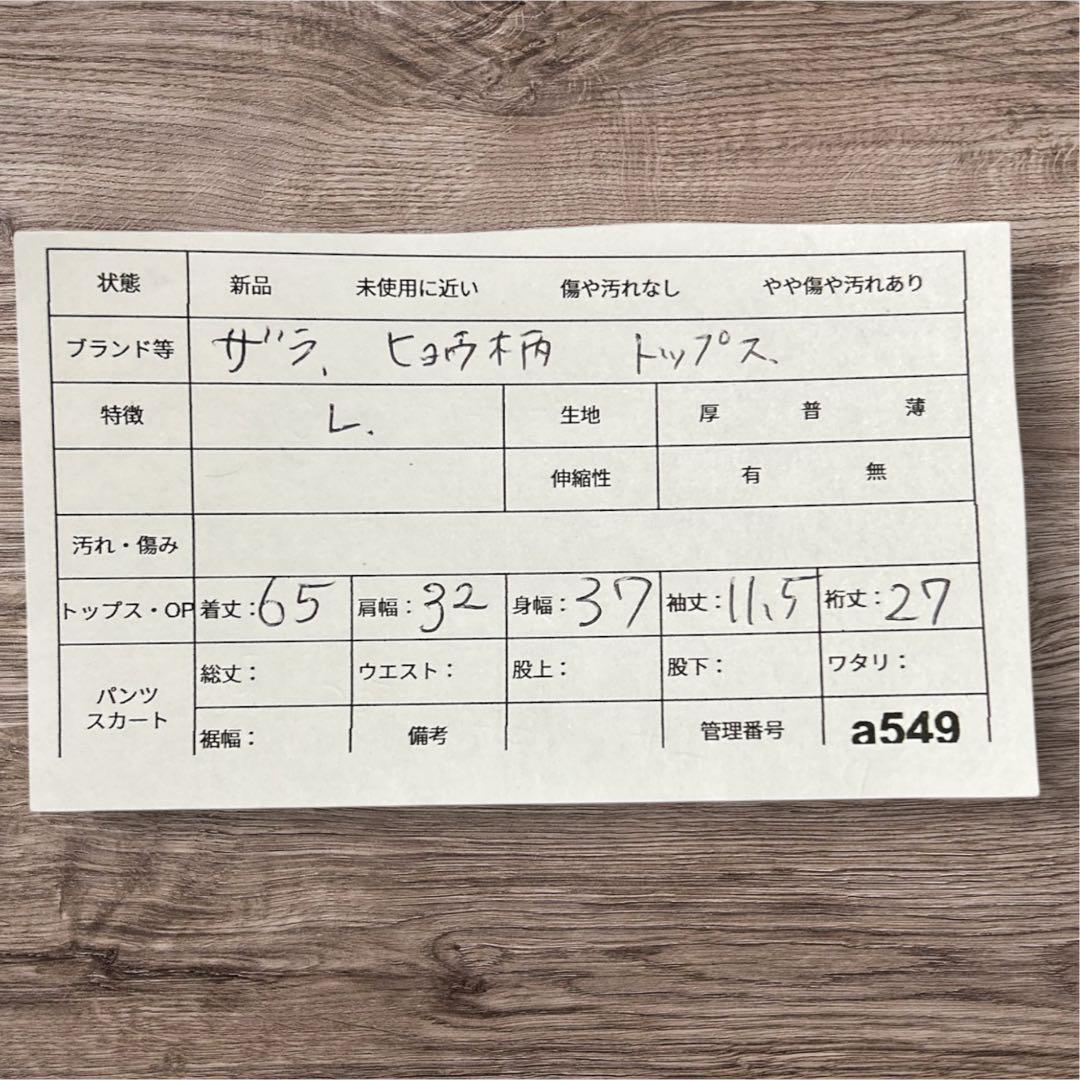 状態 新品 未使用に近い 傷や汚れなし やや傷や汚れあり
ブランド等 ザラ、 ヒョウ柄 トップス、
特徴 L. 生地 厚 普 薄
伸縮性 有 無
汚れ・傷み
トップス・OP 着丈：65 肩幅：32 身幅：37 袖丈：11.5 裄丈：27
パンツ スカート 総丈： ウエスト： 股上： 股下： ワタリ：
裾幅： 備考 管理番号 a549